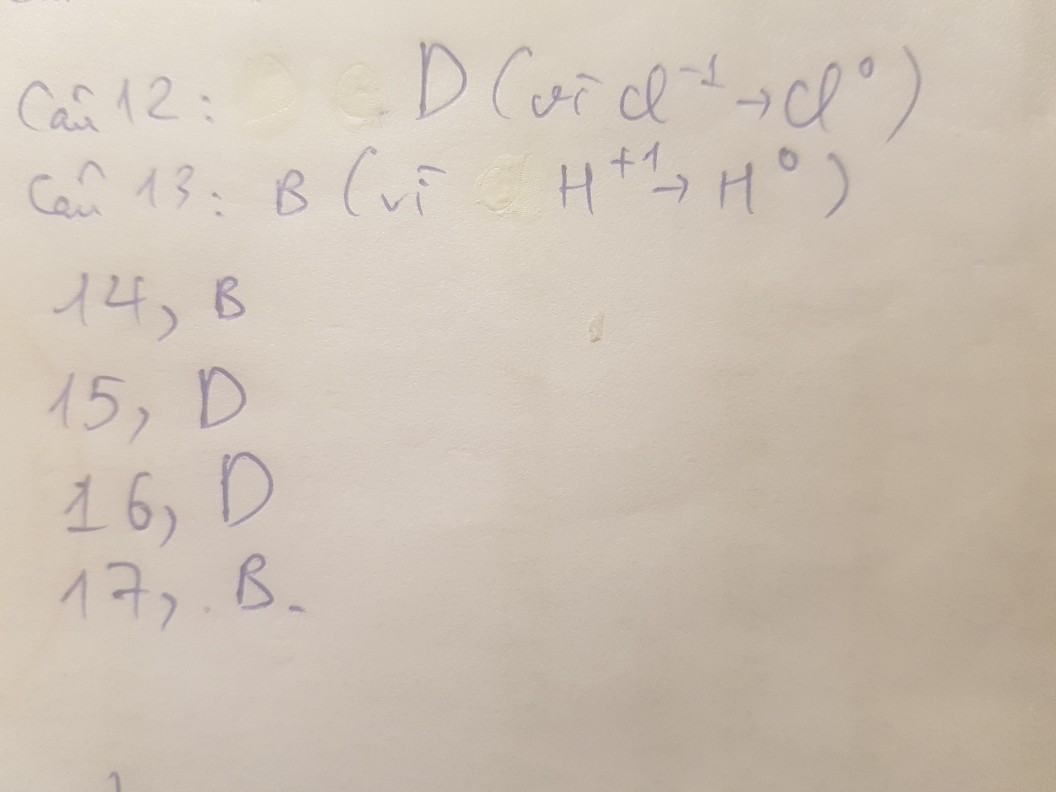 Câu 12: D (vì Cl⁻¹ → Cl⁰)
Câu 13: B (vì H⁺¹ → H⁰)
14, B
15, D
16, D
17, B.